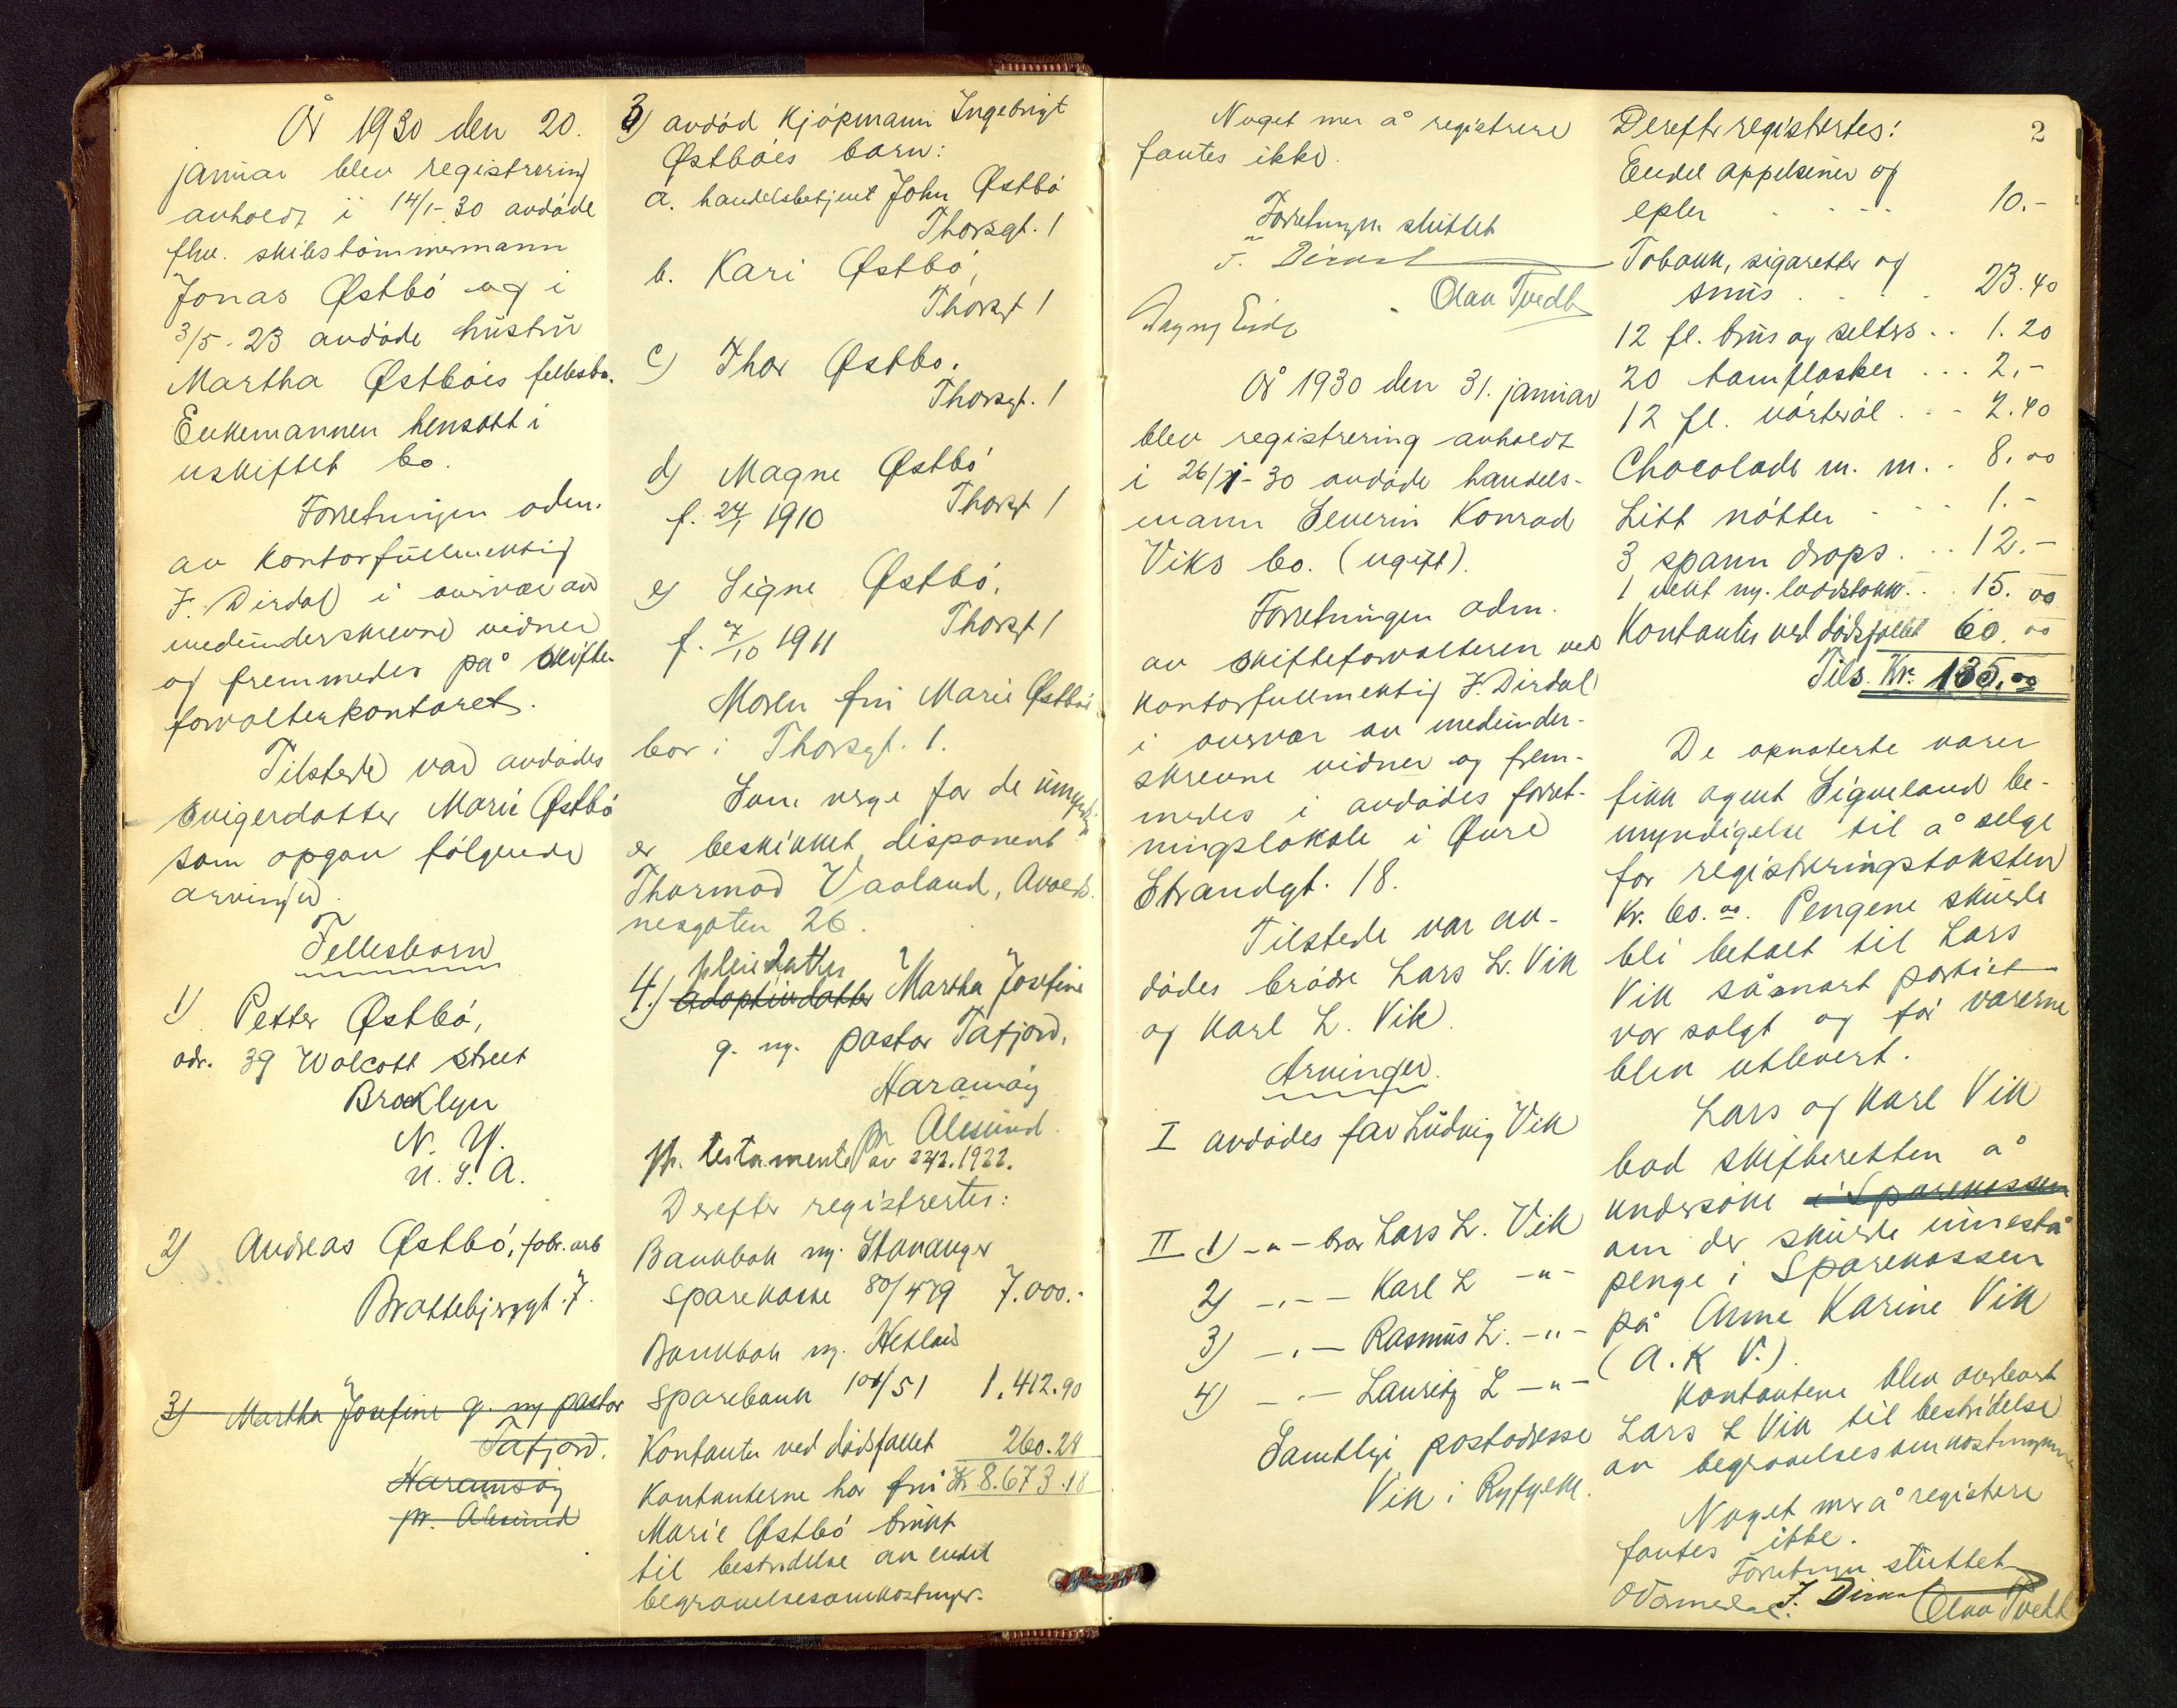 År 1930 den 20.
januar blev registrering
avholdt i 14/1-30 avdøde
fhv. skibstømmermann
Jonas Østbø og i
3/5-23 avdøde hustru
Martha Østbøis fellesbo.
Enkemannen hensatt i
uskiftet bo.
Forretningen adm.
av kontorfullmektig
F. Dirdal i overvær av
medunderskrevne vidner
og fremmedes på skifte-
forvalterkontoret.
Tilstede var avdødes
svigerdatter Marie Østbø
som opgav følgende
arvinger.
Fellesbarn
1) Petter Østbø,
adr. 39 Wolcott street
Brooklyn
N. Y.
U. S. A.
2) Andreas Østbø, fabr. arb
Brattebjerggt. 7.
3) Martha Josefine g. m pastor
Tafjord.
Haramsøy
pr. Ålesund
3) avdød Kjøpmann Ingebrigt
Østbøes barn:
a. handelsbetjent John Østbø
Thorsgt. 1
b. Kari Østbø,
Thorsgt 1
c) Thor Østbø.
Thorsgt. 1
d) Magne Østbø
f. 24/1 1910 Thorsgt 1
e) Signe Østbø.
f. 7/10 1911 Thorsgt 1
Moren fru Marie Østbø
bor i Thorsgt. 1.
Som verge for de umyndige
er beskikket disponent
Thormod Vaaland, Avalds-
nesgaten 26.
pleiedatter
4.) adoptivdatter Martha Josefine
g. m. pastor Tafjord,
Haramsøy
pr Ålesund.
pr. testamente av 22/2.1922.
Derefter registrertes:
Bankbok m. Stavanger
Sparekasse 80/479 7.000.-
Bankbok m. Hetland
Sparebank 101/51 1.412.90
Kontanter ved dødsfallet 260.28
Kontanterne har fru Kr. 8.673.18
Marie Østbø brukt
til bestridelse av endel
begravelsesomkostninger.
Noget mer å registrere
fantes ikke.
Forretningen sluttet
F. Dirdal
Olav Tvedt
Dagny Eide
År 1930 den 31. januar
blev registrering avholdt
i 26/1-30 avdøde handels-
mann Severin Konrad
Viks bo. (ugift).
Forretningen adm.
av skifteforvalteren ved
kontorfullmektig F. Dirdal
i overvær av medunder-
skrevne vidner og frem-
medes i avdødes forret-
ningslokale i Øvre
Strandgt. 18.
Tilstede var av-
dødes brødre Lars L. Vik
og Karl L. Vik.
Arvinger.
I avdødes far Ludvig Vik
II 1) -"- bror Lars L. Vik
2) -"- Karl L -"-
3) -"- Rasmus L. -"-
4) -"- Lauritz L -"-
Samtlige postadresse
Vik i Ryfylke.
2
Derefter registrertes:
Endel appelsiner og
epler . . . . 10.-
Tobakk, sigaretter og
snus . . . . 23.40
12 fl. brus og selters . . 1.20
20 tomflasker . . . 2.-
12 fl. vørterøl . . . 2.40
Chocolade m. m. . 8.00
Litt nøtter . . . 1.-
3 spann drops . . . 12.-
1 vekt m. loddstokk . . . 15.00
Kontanter ved dødsfallet 60.00
Tils. Kr. 135.00
De opnoterte varer
fikk agent Sigveland be-
myndigelse til å selge
for registreringstaksten
Kr. 60.00. Pengene skulde
bli betalt til Lars
Vik såsnart partiet
var solgt og før varerne
blev utlevert.
Lars og Karl Vik
bad skifteretten å
undersøke i Sparekassen
om der skulde innestå
penge i Sparekassen
på Anne Karine Vik
(A. K V.).
Kontantene blev overlevert
Lars L Vik til bestridelse
av begravelsesomkostningene
Noget mer å registrere
fantes ikke.
Forretningen sluttet
F. Dirdal
Olav Tvedt